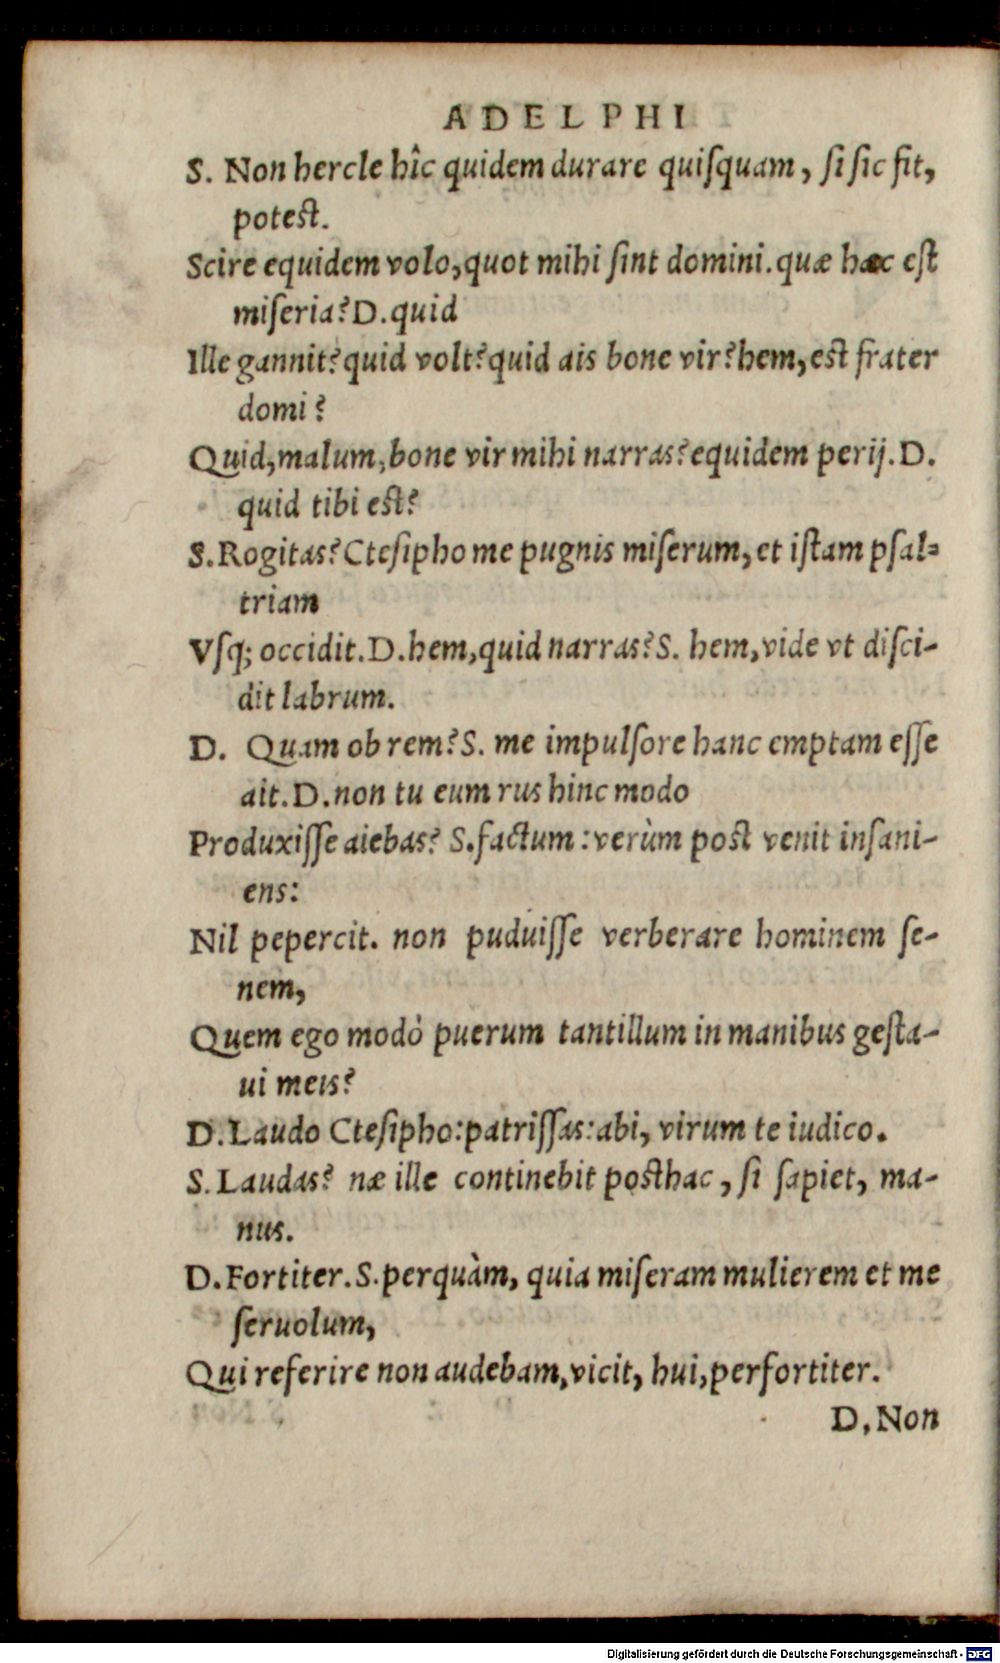 ADELPHI
S. Non hercle hîc quidem durare quiſquam, ſi ſic fit,
poteſt.
Scire equidem volo, quot mihi ſint domini. quæ hæc eſt
miſeria? D. quid
Ille gannit? quid volt? quid ais bone vir? hem, eſt frater
domi?
Quid, malum, bone vir mihi narras? equidem perij. D.
quid tibi eſt?
S. Rogitas? Cteſipho me pugnis miſerum, et iſtam pſal=
triam
Vſq; occidit. D. hem, quid narras? S. hem, vide vt diſci-
dit labrum.
D. Quam ob rem? S. me impulſore hanc emptam eſſe
ait. D. non tu eum rus hinc modo
Produxiſſe aiebas? S. factum: verùm poſt venit inſani-
ens:
Nil pepercit. non puduiſſe verberare hominem ſe-
nem,
Quem ego modò puerum tantillum in manibus geſta-
ui meis?
D. Laudo Cteſipho: patriſſas: abi, virum te iudico.
S. Laudas? næ ille continebit poſthac, ſi ſapiet, ma-
nus.
D. Fortiter. S. perquàm, quia miſeram mulierem et me
ſeruolum,
Qui referire non audebam, vicit, hui, perfortiter.
D, Non
Digitalisierung gefördert durch die Deutsche Forschungsgemeinschaft - DFG